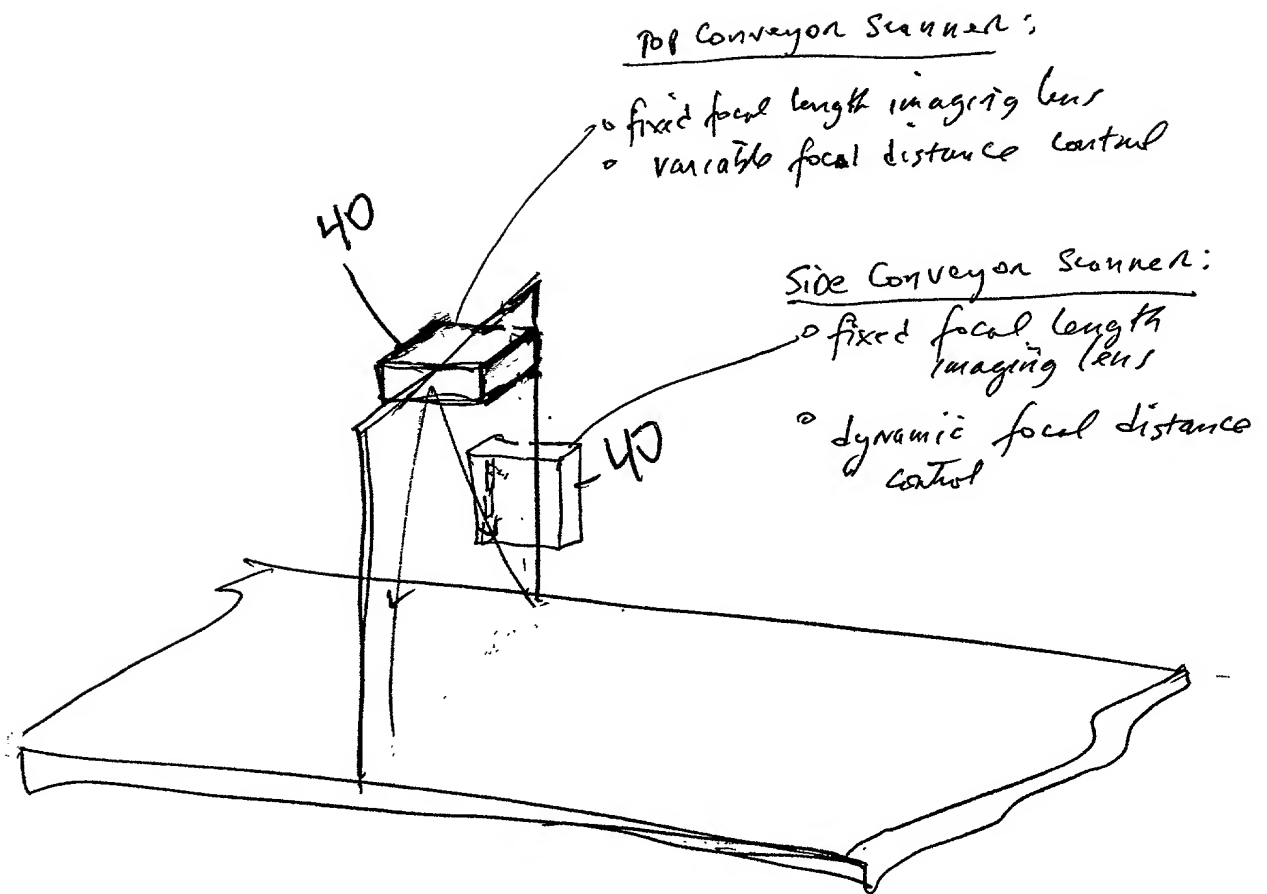 Top Conveyor Scanner:
o fixed focal length imaging lens
o variable focal distance control
40
Side Conveyor Scanner:
o fixed focal length
imaging lens
40
o dynamic focal distance
control